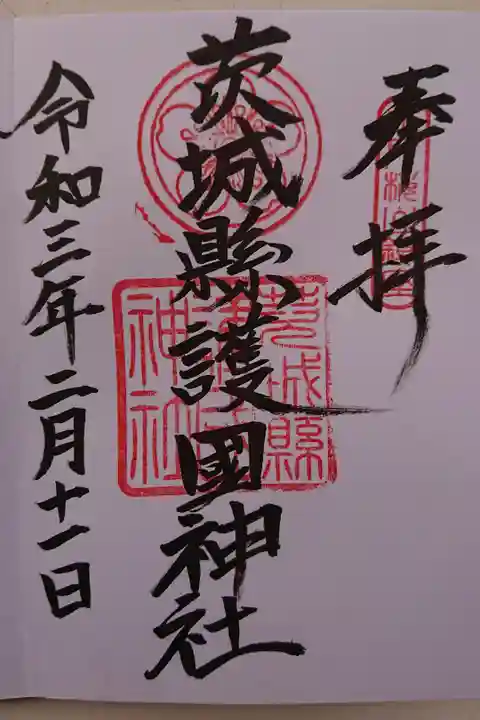 奉拝
茨城縣護國神社
茨城縣
護國
神社
令和三年二月十一日